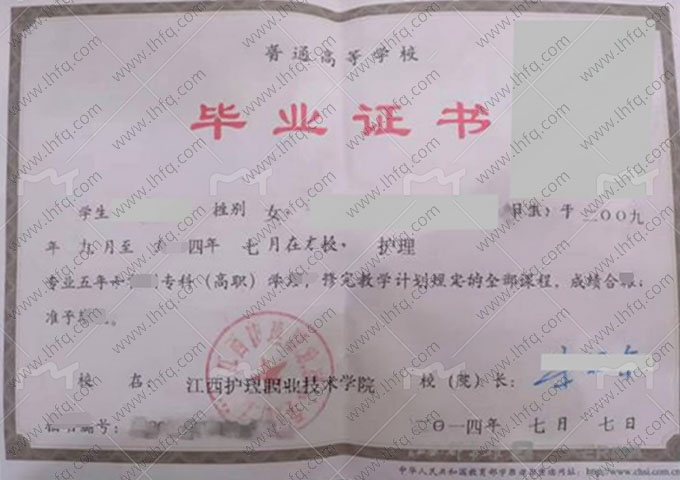 普通高等学校
毕业证书
学生 性别 女, 日生)于 二〇〇九
年 九月至 四年 七月在本校 护理
专业五年 专科(高职)学 修完教学计划规定的全部课程,成绩合
准予
校 名: 江西护理职业技术学院 校(院)长:
编号: 二〇一四年 七月 七日
中华人民共和国教育部学历证书查询网址: http://www.chsi.com.cn
www.lhfq.com